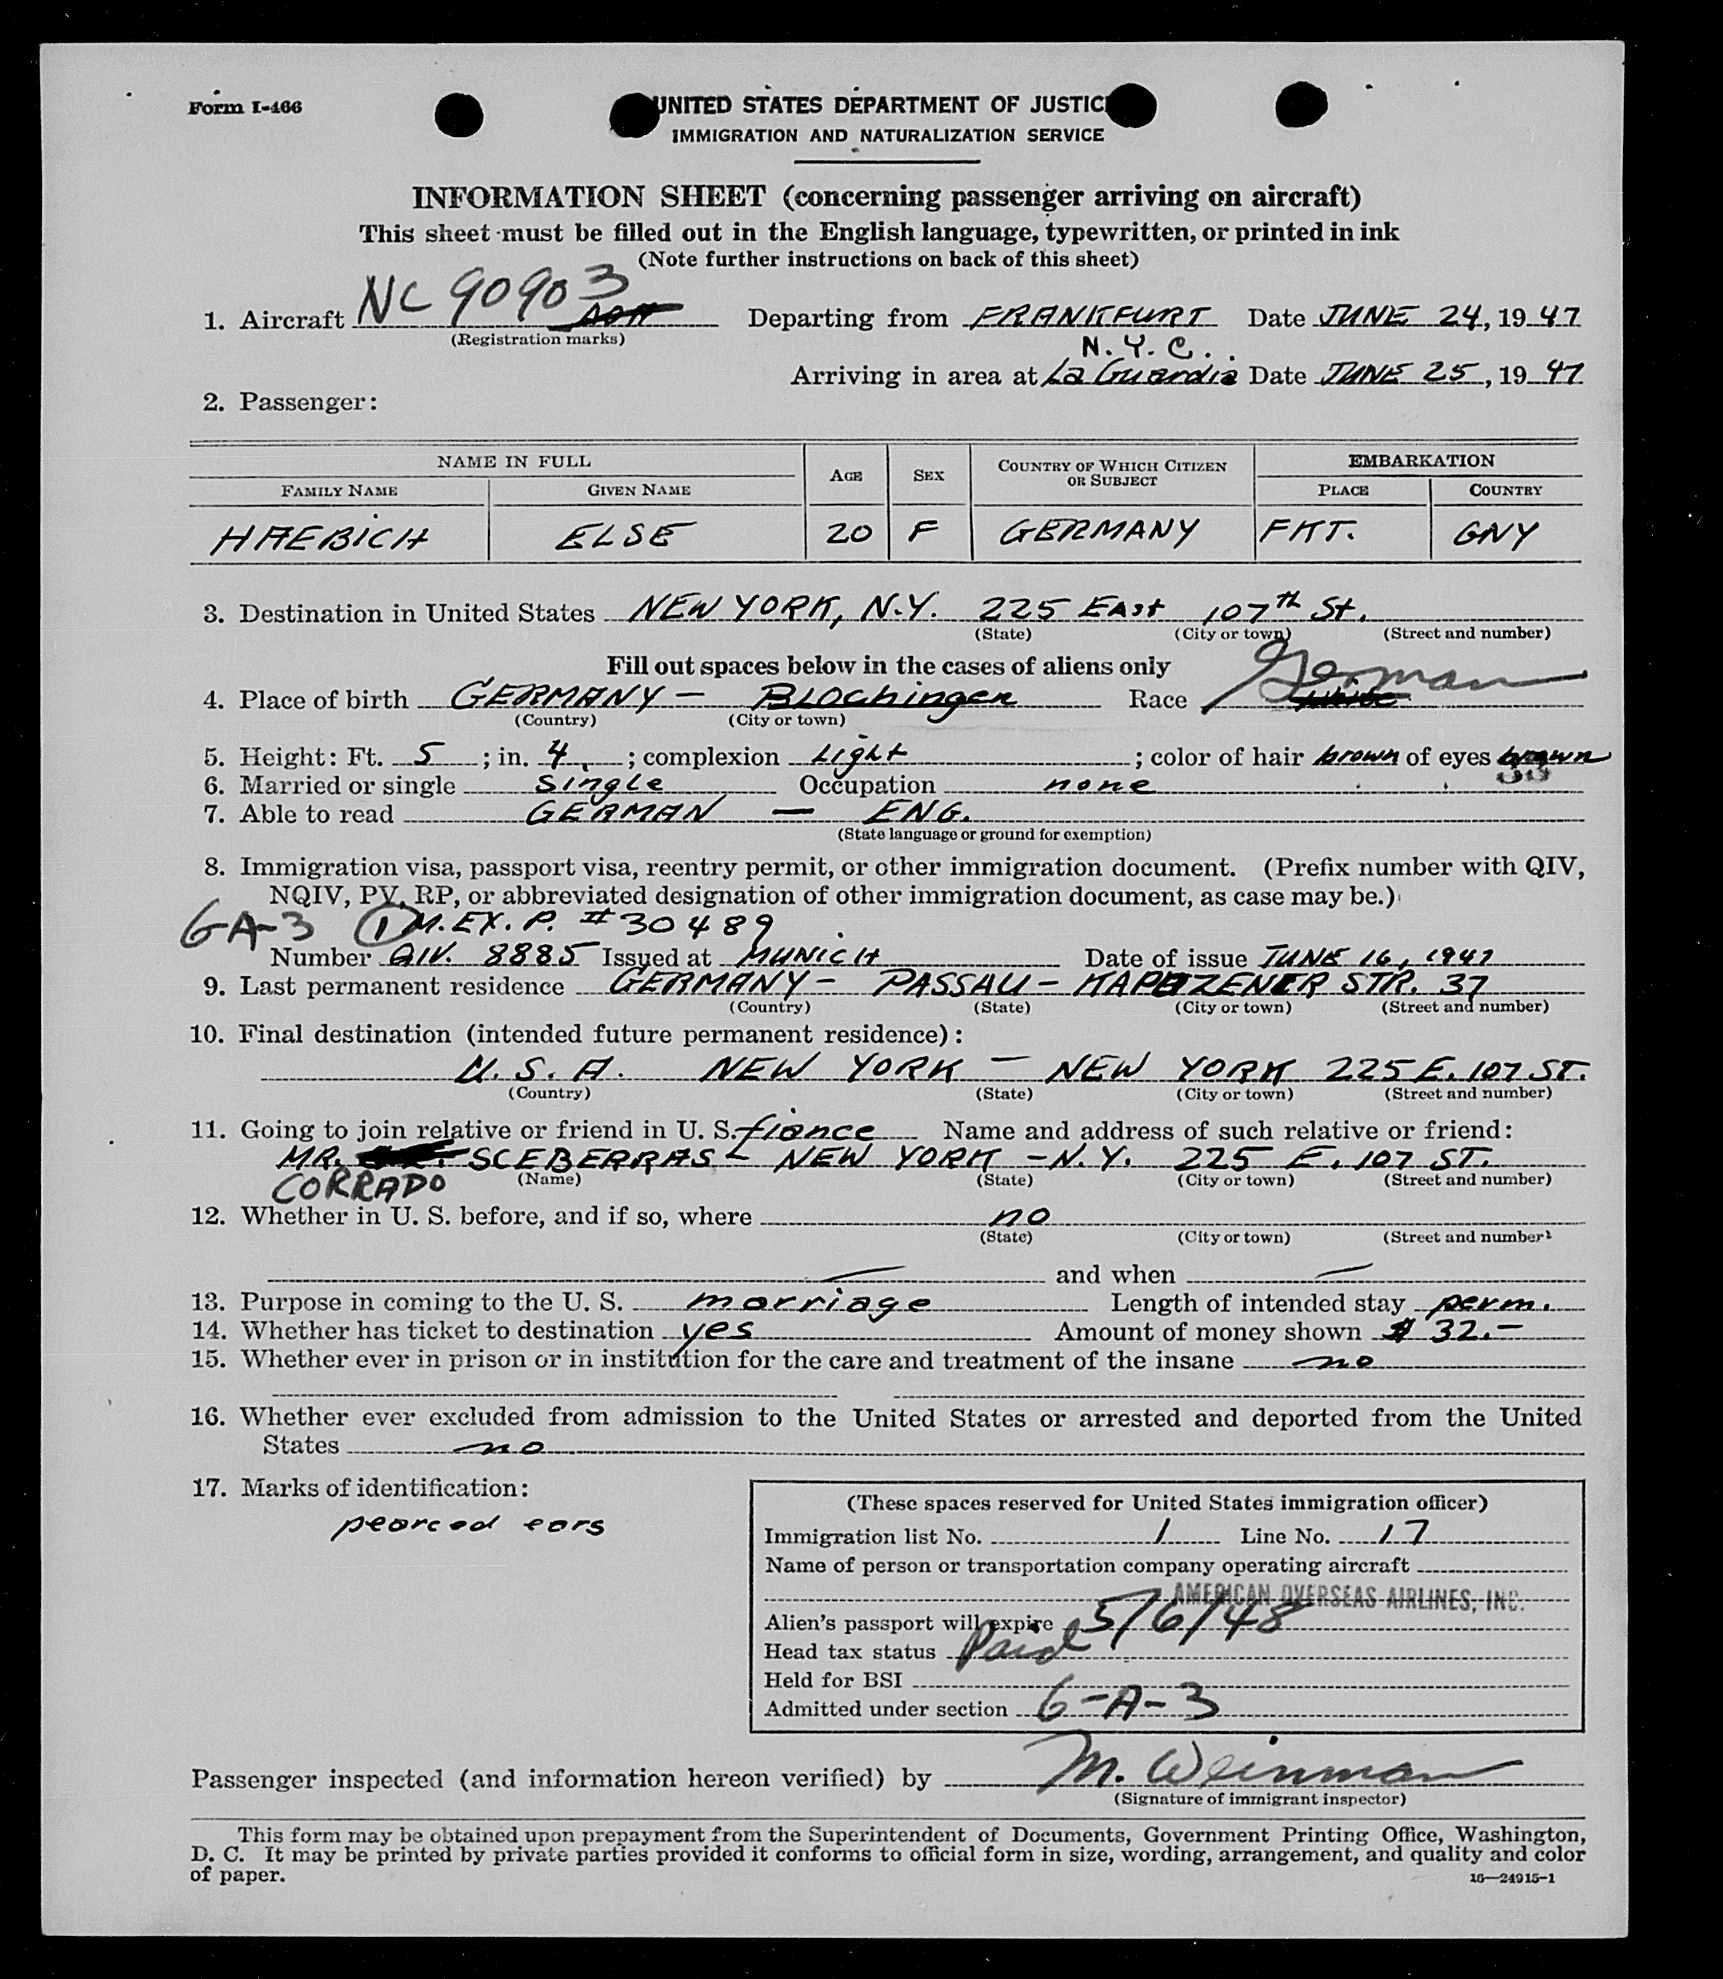 Form I-466
UNITED STATES DEPARTMENT OF JUSTICE
IMMIGRATION AND NATURALIZATION SERVICE
INFORMATION SHEET (concerning passenger arriving on aircraft)
This sheet must be filled out in the English language, typewritten, or printed in ink
(Note further instructions on back of this sheet)
1. Aircraft NC 90903 Departing from FRANKFURT Date JUNE 24, 1947
(Registration marks)
N.Y.C.
Arriving in area at La Guardia Date JUNE 25, 1947
2. Passenger:
NAME IN FULL AGE SEX COUNTRY OF WHICH CITIZEN OR SUBJECT EMBARKATION
FAMILY NAME GIVEN NAME PLACE COUNTRY
HAEBICH ELSE 20 F GERMANY FKT. GNY
3. Destination in United States NEW YORK, N.Y. 225 EAST 107th St.
(State) (City or town) (Street and number)
Fill out spaces below in the cases of aliens only
4. Place of birth GERMANY — Blochingen Race German
(Country) (City or town)
5. Height: Ft. 5; in. 4; complexion Light; color of hair brown of eyes brown
6. Married or single single Occupation none
7. Able to read GERMAN — ENG.
(State language or ground for exemption)
8. Immigration visa, passport visa, reentry permit, or other immigration document. (Prefix number with QIV,
NQIV, PV, RP, or abbreviated designation of other immigration document, as case may be.)
6-A-3 1 M.EX.P. # 30489
Number QIV. 8885 Issued at MUNICH Date of issue JUNE 16, 1947
9. Last permanent residence GERMANY - PASSAU - KAPUZENER STR. 37
(Country) (State) (City or town) (Street and number)
10. Final destination (intended future permanent residence):
U.S.A. NEW YORK — NEW YORK 225 E. 107 ST.
(Country) (State) (City or town) (Street and number)
11. Going to join relative or friend in U. S. fiance Name and address of such relative or friend:
MR. SCEBERRAS - NEW YORK - N.Y. 225 E. 107 ST.
CORRADO (Name) (State) (City or town) (Street and number)
12. Whether in U. S. before, and if so, where no
(State) (City or town) (Street and number)
— and when —
13. Purpose in coming to the U. S. marriage Length of intended stay perm.
14. Whether has ticket to destination yes Amount of money shown $ 32.—
15. Whether ever in prison or in institution for the care and treatment of the insane no
16. Whether ever excluded from admission to the United States or arrested and deported from the United
States no
17. Marks of identification:
pearced ears
(These spaces reserved for United States immigration officer)
Immigration list No. 1 Line No. 17
Name of person or transportation company operating aircraft
AMERICAN OVERSEAS AIRLINES, INC.
Alien's passport will expire 5/6/48
Head tax status Paid
Held for BSI
Admitted under section 6-A-3
Passenger inspected (and information hereon verified) by M. Weinman
(Signature of immigrant inspector)
This form may be obtained upon prepayment from the Superintendent of Documents, Government Printing Office, Washington,
D. C. It may be printed by private parties provided it conforms to official form in size, wording, arrangement, and quality and color
of paper.
16—24915-1